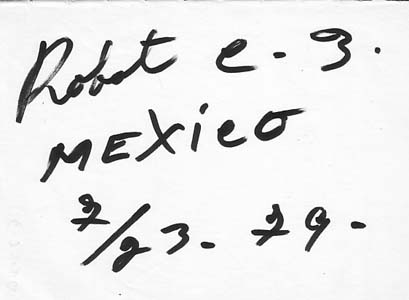 Robot e. 3.
MEXico
7/23. 79.